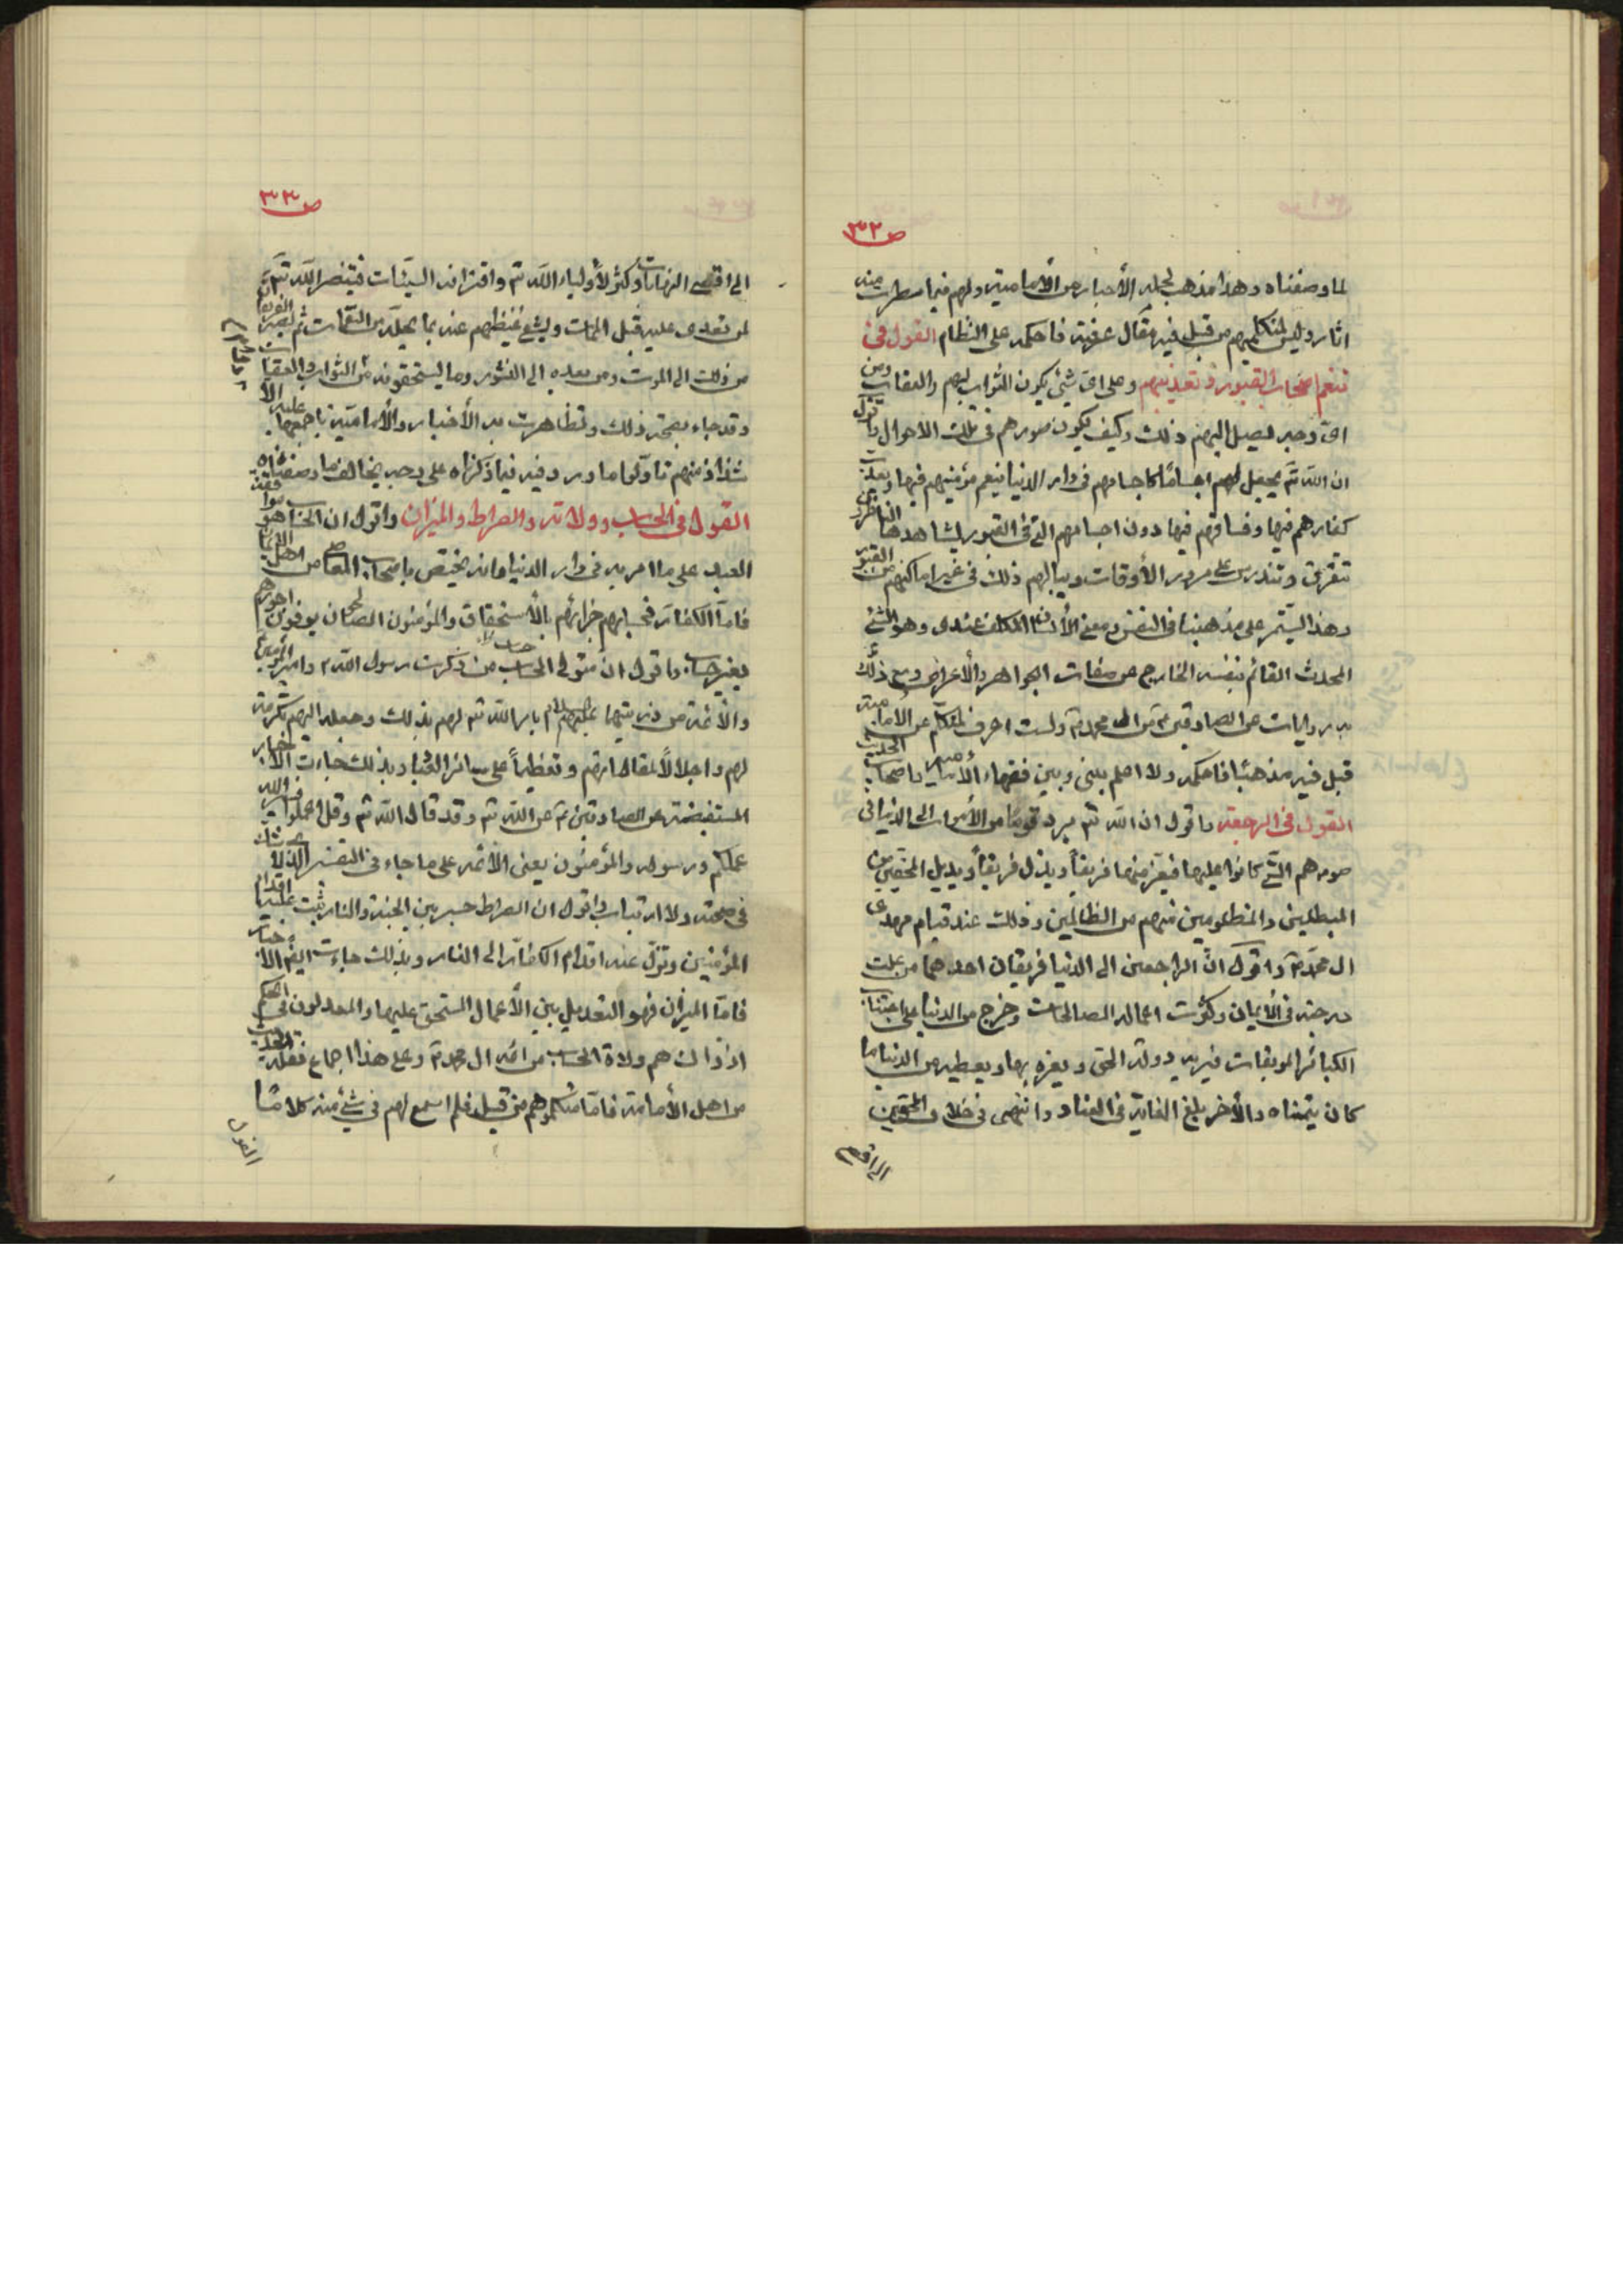 ص ٣٢
لما وصفناه وهذا مذهب لحملة الأخبار من الأمامية ولهم فيما سطرت منه
اثار وليس لمتكلميهم من قبل فيه مقال عرفته فاحكيه على النظام القول في
تنعم اصحاب القبور وتعذيبهم وعلى اى شيئ يكون الثواب لهم والعقاب ومن
اى وجه يصل اليهم ذلك وكيف تكون صورهم في تلك الاحوال واقول
ان الله تع يجعل لهم اجسامًا كاجسامهم في دار الدنيا ينعم مؤمنيهم فيها ويعذب
كفارهم فيها وفساقهم فيها دون اجسامهم التي في القبور يشاهدها الناظرون
تتفرق وتندرس على مرور الأوقات وينالهم ذلك في غير اماكنهم من القبور
وهذا يستمر على مذهبنا في النفس ومعنى الأنسان المكلف عندى وهو الشئ
المحدث القائم بنفسه الخارج عن صفات الجواهر والأعراض ومع ذلك
به روايات عن الصادقين ع من ال محمد ص ولست اعرف لمتكلم من الامامية
قبل فيه مذهبًا فاحكيه ولا اعلم بيني وبين فقهاء الأمامية واصحاب الحديث
القول في الرجعة واقول ان الله تع يرد قومًا من الأموات الى الدنيا في
صورهم التي كانوا عليها فيعز منهما فريقاً ويذل فريقاً ويديل المحقين من
المبطلين والمظلومين منهم من الظالمين وذلك عند قيام مهدى
ال محمد ع واقول انّ الراجعين الى الدنيا فريقان احدهما من علت
درجته في الأيمان وكثرت اعماله الصالحات وخرج من الدنيا على اجتناب
الكبائر الموبقات فيريه دولة الحق ويعزه بها ويعطيه من الدنيا ما
كان يتمناه والأخر بلغ الغاية في الفساد وانتهى في خلاف المحقين
الى اقصى
ص ٣٣
الى اقصى النهايات وكثر لأولياء الله تع واقترافه السيّئات فينتصر الله تع
لمن تعدى عليه قبل الممات ويشفى غيظهم عنه بما يحلّه من النقمات ثم يصير الفريقان
من ذلك الى الموت ومن بعده الى النشور وما يستحقونه من الثواب والعقاب
وقد جاء بصحة ذلك وتظاهرت به الأخبار والأمامية باجمعها عليه الا
شذاذ منهم تاولوا ما ورد فيه فيما ذكرناه على وجه يخالف ما وصفناه
القول في الحساب وولاته والصراط والميزان واقول ان الحساب هو موافقة
العبد على ما امر به في دار الدنيا وانه يختص باصحاب المعاصي من اهل الأيمان
فامّا الكفار فحسابهم جزائهم بالأستحقاق والمؤمنون الصالحون يوفون اجورهم
بغير حساب واقول ان متولى الحساب من ذكرت رسول الله ص وامير المؤمنين ع
والأئمة من ذريتهما عليهم السلام بامر الله تع لهم بذلك وجعله اليهم تكرمة
لهم واجلالًا لمقاماتهم وتعظيماً على سائر العباد وبذلك جاءت الأخبار
المستفيضة عن الصادقين ع عن الله تع وقد قال الله تع وقل اعملوا فسيرى الله
عملكم ورسوله والمؤمنون يعنى الأئمة على ما جاء في التفسير الذى لا شك
في صحته ولا ارتياب واقول ان الصراط جسر بين الجنة والنار تثبت عليه اقدام
المؤمنين وتزل عنه اقدام الكفار الى النار وبذلك جاءت ايضا الأخبار
فامّا الميزان فهو التعديل بين الأعمال المستحق عليها والمعدلون في الحكم
اذ ذاك هم ولاة الحساب من ائمة ال محمد ع وعلى هذا اجماع نقلة الحديث
من اهل الأمامة فامّا متكلموهم من قبل فلم اسمع لهم في شئ منه كلامًا
القول